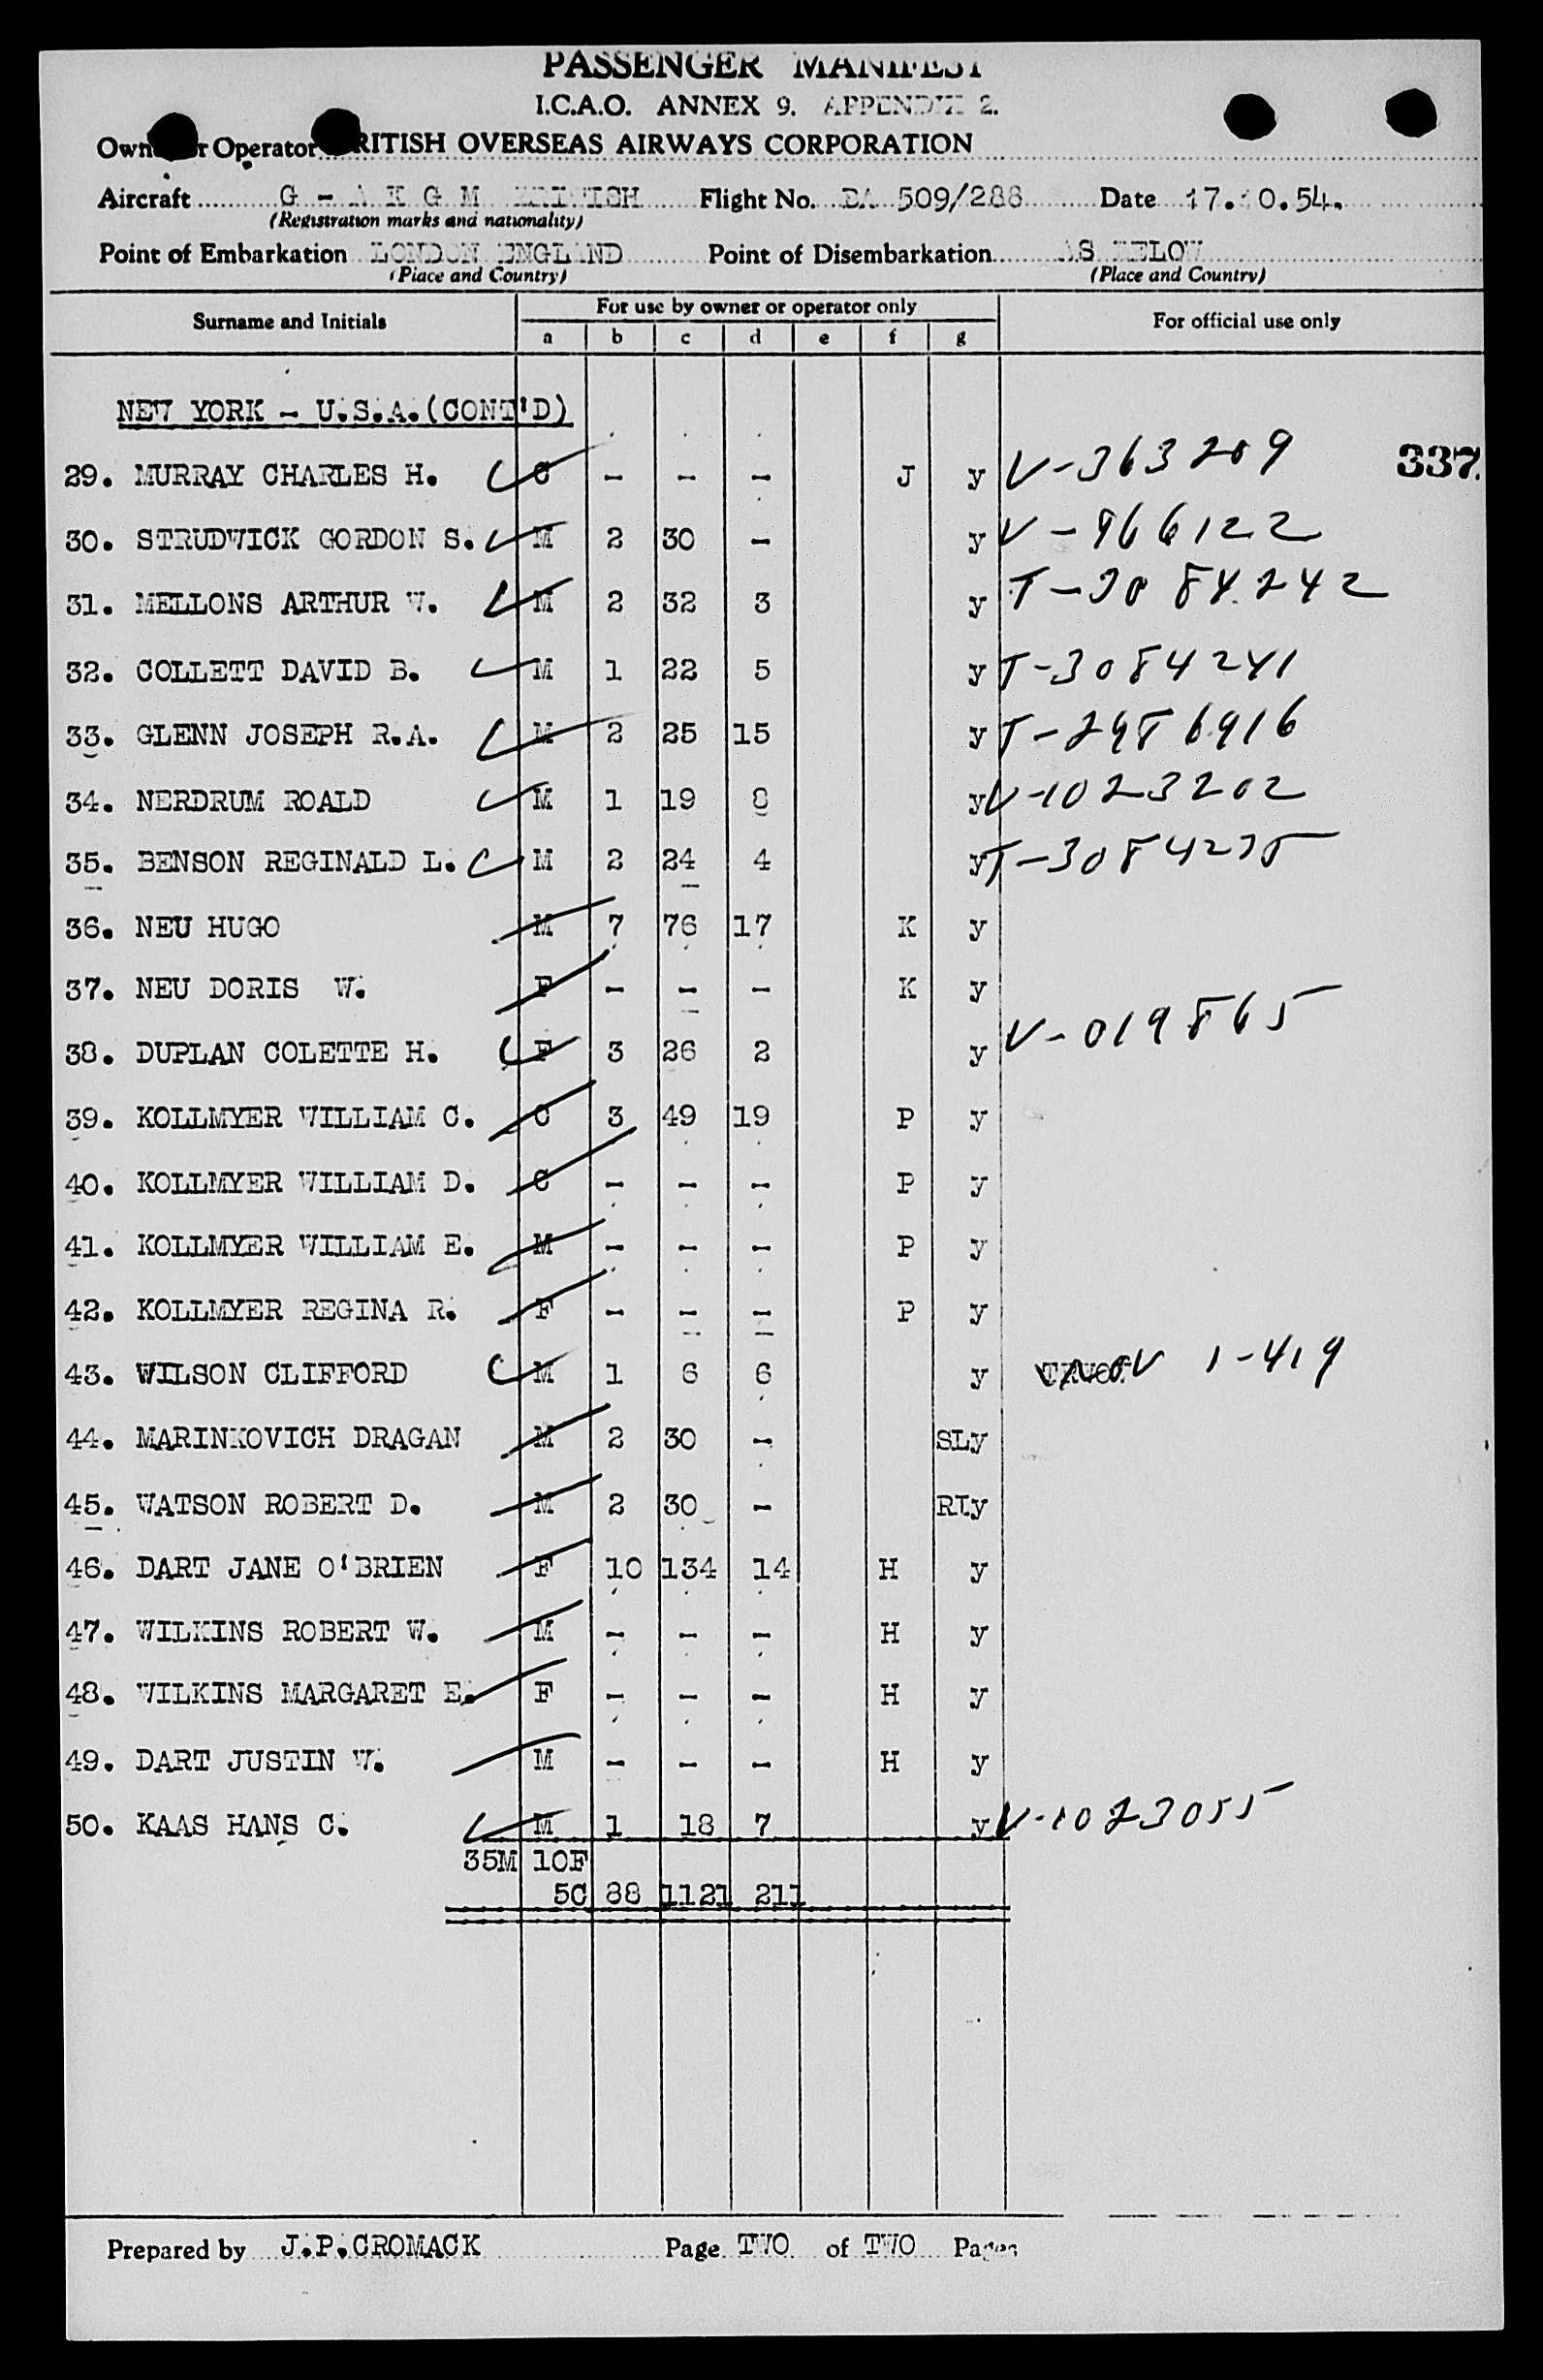 PASSENGER MANIFEST
I.C.A.O. ANNEX 9. APPENDIX 2.
Owner or Operator BRITISH OVERSEAS AIRWAYS CORPORATION
Aircraft G - A K G M BRITISH Flight No. BA 509/288 Date 17.10.54.
(Registration marks and nationality)
Point of Embarkation LONDON ENGLAND Point of Disembarkation AS BELOW
(Place and Country) (Place and Country)
Surname and Initials For use by owner or operator only For official use only
a b c d e f g
NEW YORK - U.S.A.(CONT'D)
29. MURRAY CHARLES H. C - - - J y V-363209 337.
30. STRUDWICK GORDON S. M 2 30 - y V-966122
31. MELLONS ARTHUR W. M 2 32 3 y T-3084242
32. COLLETT DAVID B. M 1 22 5 y T-3084241
33. GLENN JOSEPH R.A. M 2 25 15 y T-2986916
34. NERDRUM ROALD M 1 19 8 y V-1023202
35. BENSON REGINALD L. M 2 24 4 y T-3084235
36. NEU HUGO M 7 76 17 K y
37. NEU DORIS W. F - - - K y
38. DUPLAN COLETTE H. F 3 26 2 y V-019865
39. KOLLMYER WILLIAM C. C 3 49 19 P y
40. KOLLMYER WILLIAM D. C - - - P y
41. KOLLMYER WILLIAM E. M - - - P y
42. KOLLMYER REGINA R. F - - - P y
43. WILSON CLIFFORD M 1 6 6 y V 1-419
44. MARINKOVICH DRAGAN M 2 30 - SLy
45. WATSON ROBERT D. M 2 30 - RLy
46. DART JANE O'BRIEN F 10 134 14 H y
47. WILKINS ROBERT W. M - - - H y
48. WILKINS MARGARET E. F - - - H y
49. DART JUSTIN W. M - - - H y
50. KAAS HANS C. M 1 18 7 y V-1023055
35M 10F
5C 88 1121 211
Prepared by J.P.CROMACK Page TWO of TWO Pages